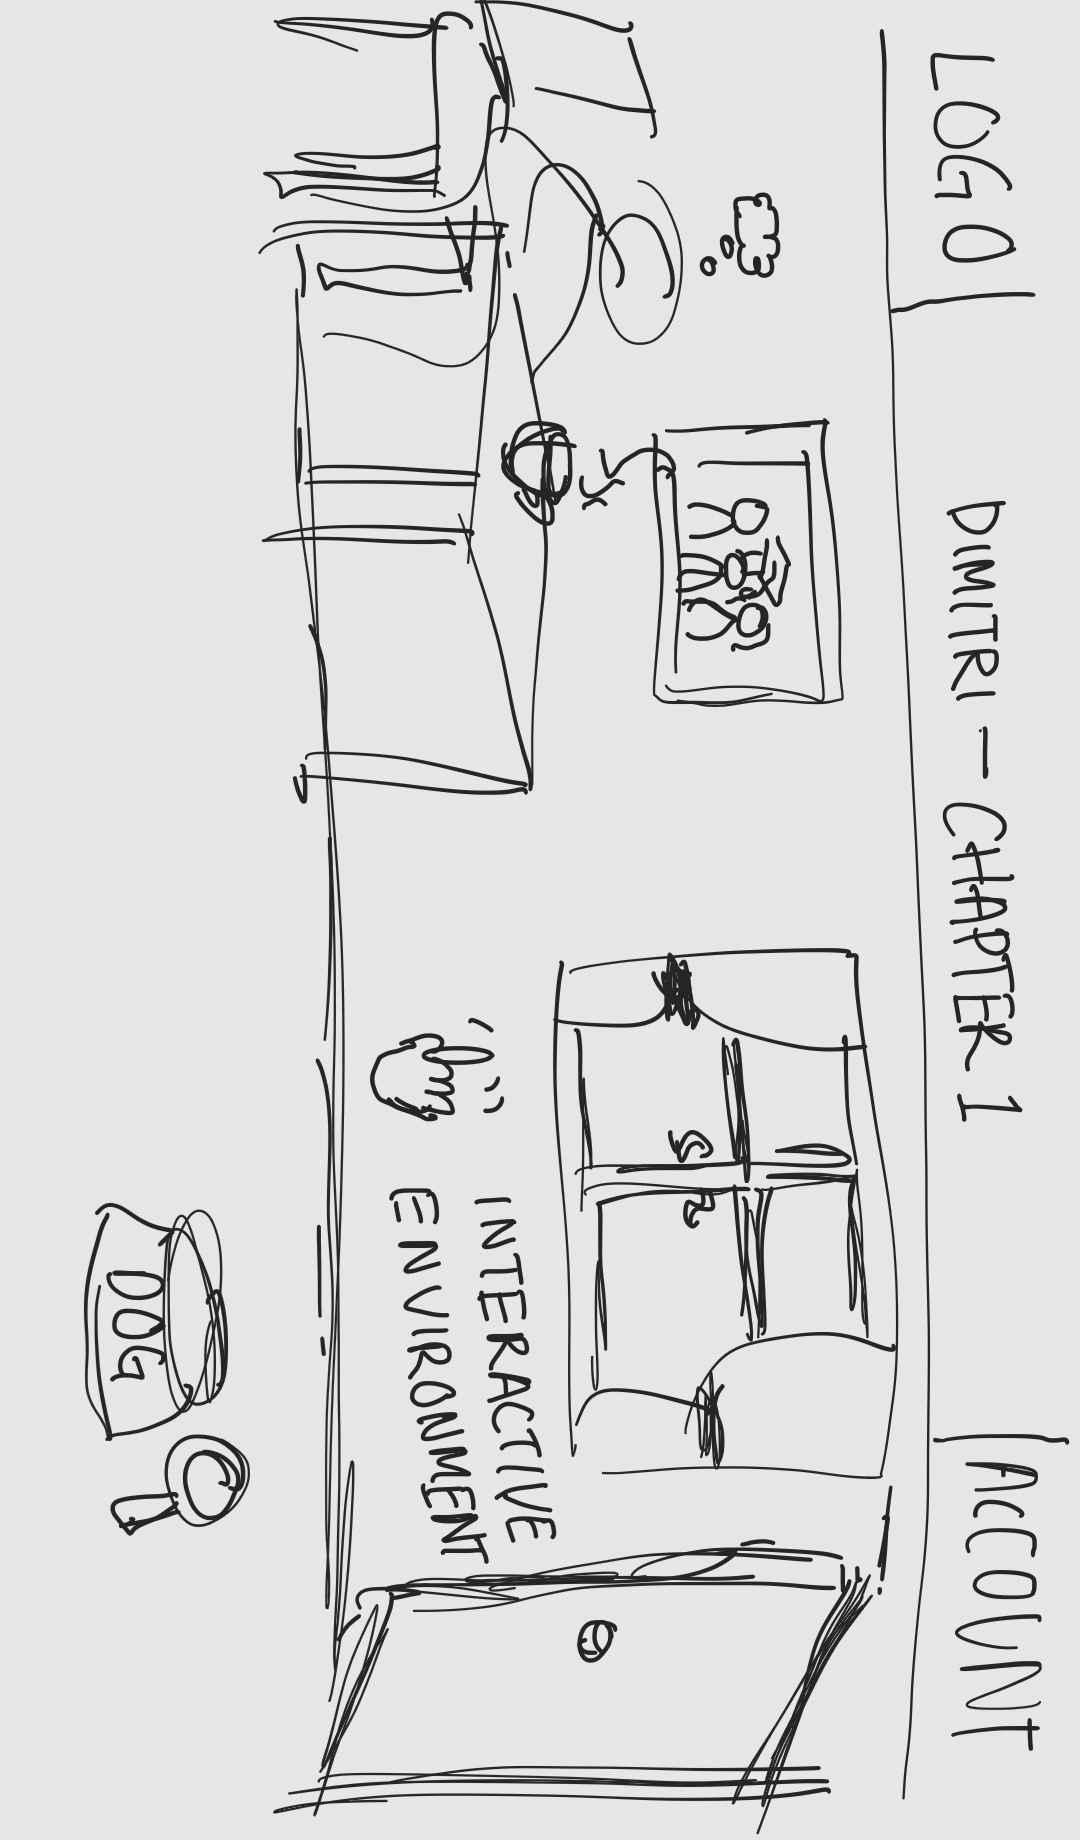 LOGO
DIMITRI - CHAPTER 1
ACCOUNT
INTERACTIVE
ENVIRONMENT
DOG